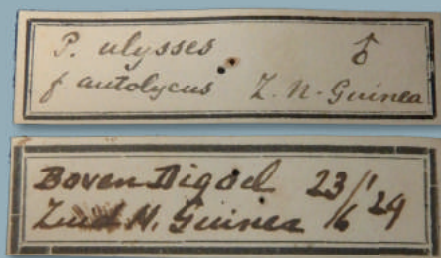 P. ulysses ♂
f autolycus Z. N. Guinea
Boven Digoel 23/6 '29
Zuid N. Guinea